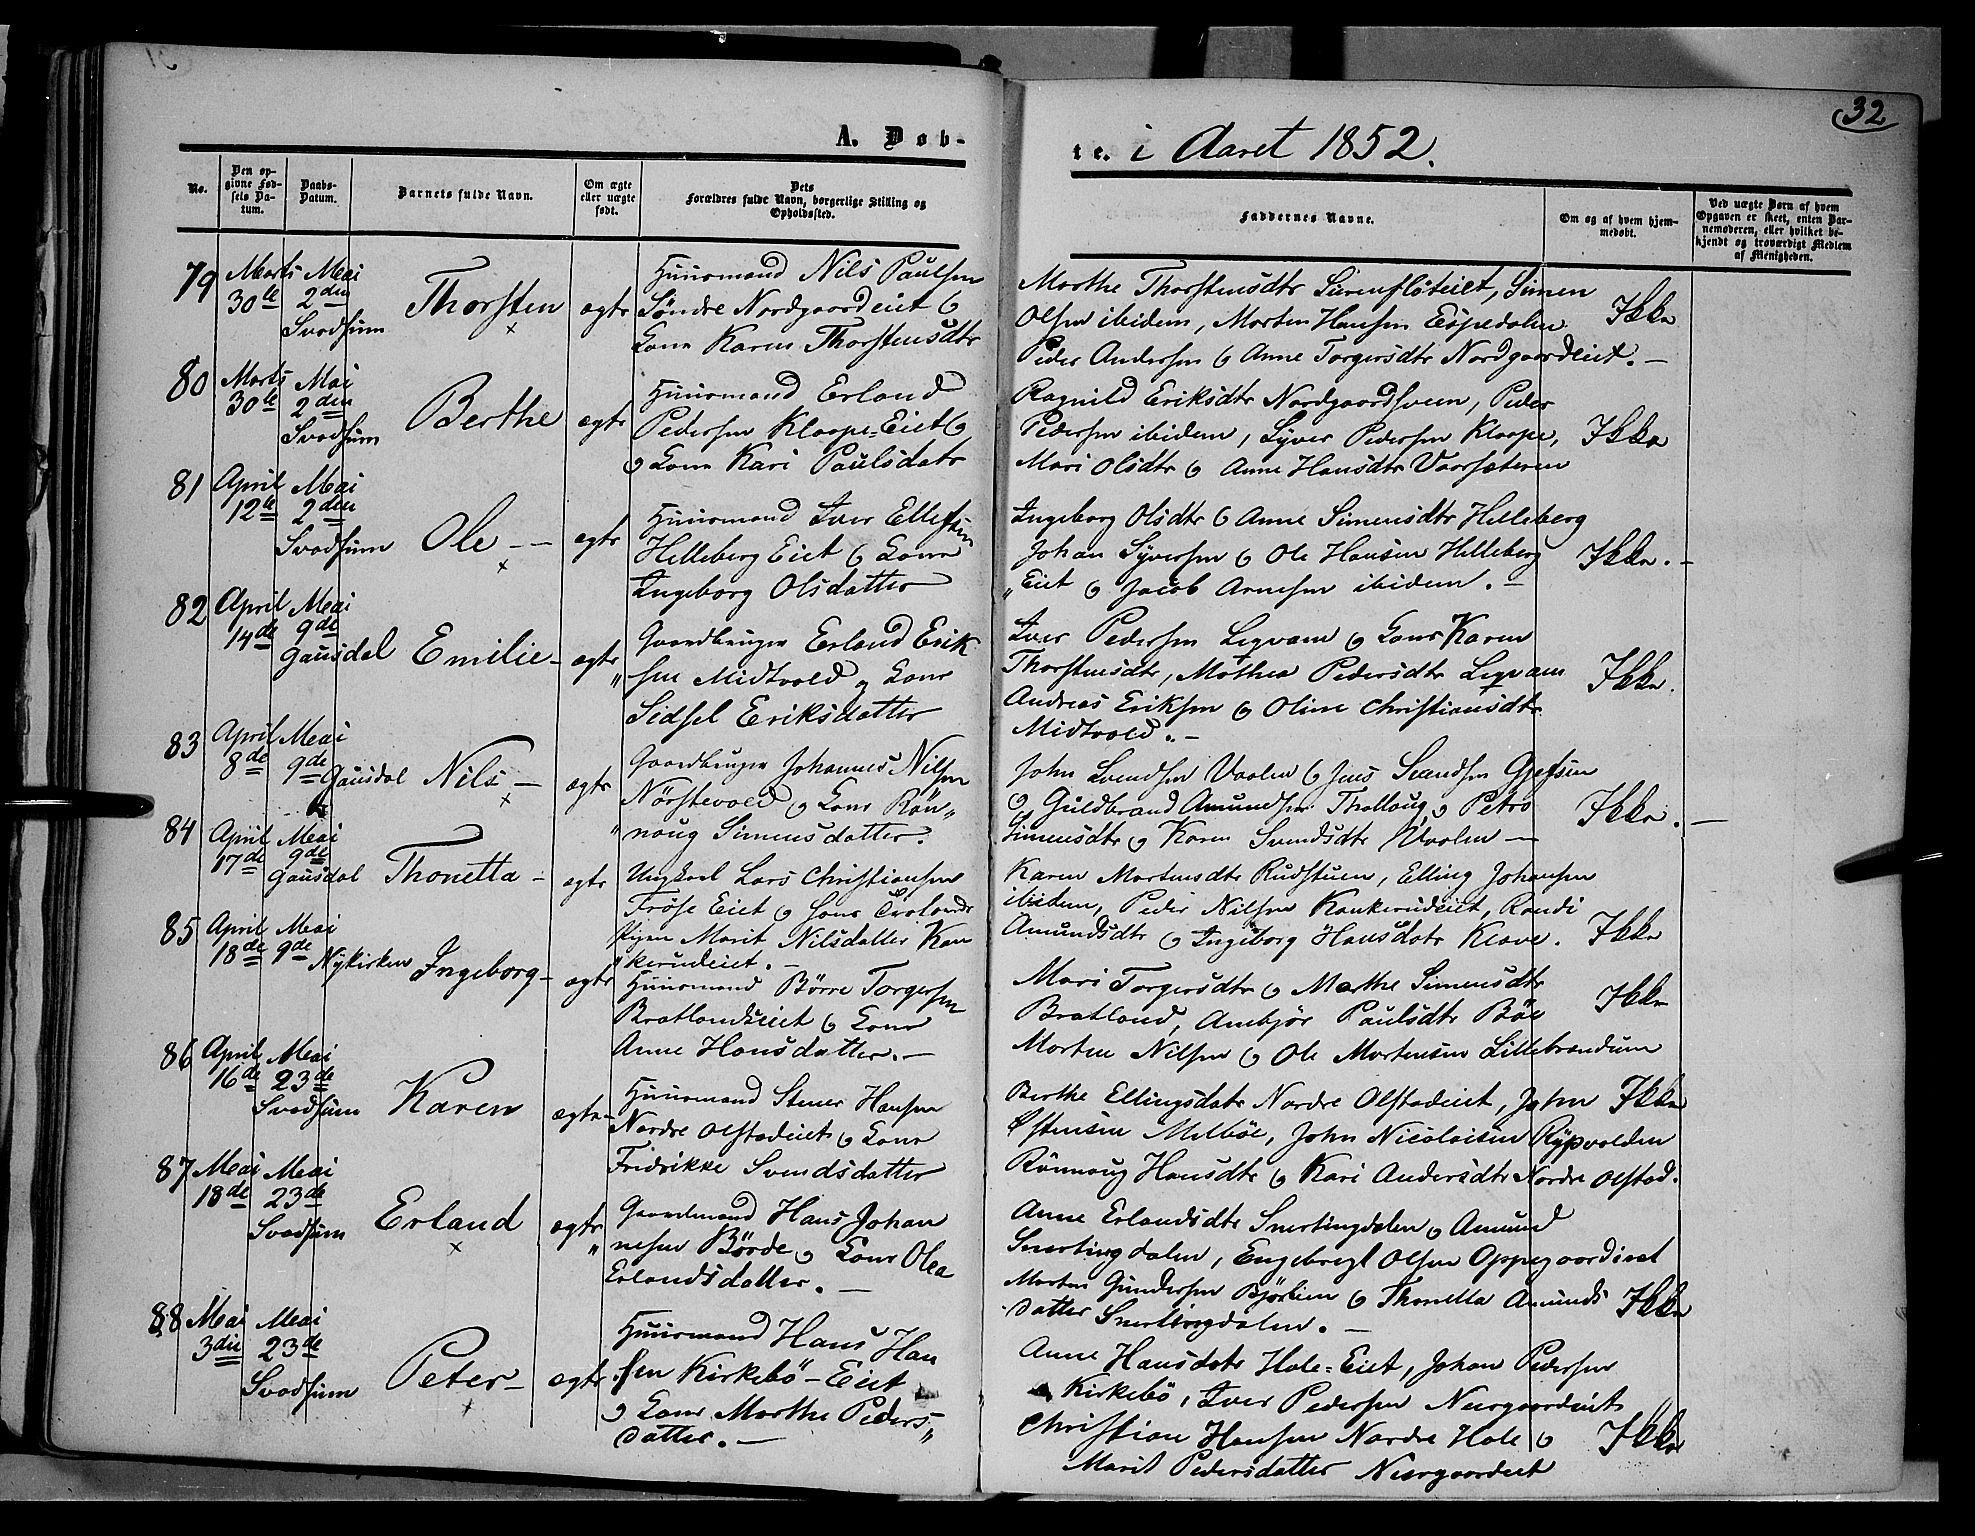 32
A. Døb-
te. i Aaret 1852.
No.
Den op-
givne Fød-
sels Da-
tum.
Daabs-
Datum.
Barnets fulde Navn.
Om ægte
eller uægte
født.
Dets
Forældres fulde Navn, borgerlige Stilling og
Opholdssted.
Faddernes Navne.
Om og af hvem hjem-
medøbt.
Ved uægte Børn af hvem
Opgaven er skeet, enten Bar-
nemoderen, eller hvilket be-
kjendt og troværdigt Medlem
af Menigheden.
79 Marts 30te Mai 2den Svadsum
Thorsten
ægte
Huusmand Nils Paulsen
Søndre Nordgaardeiet &
Kone Karen Thorstensdtr
Marthe Thorstensdtr, Simen
Olsen ibidem, Morten Hansen Espedalen
Peder Andersen & Anne Torgersdtr Nordgaardeiet. –
Ikke
80 Marts 30te Mai 2den Svadsum
Berthe
ægte
Huusmand Erland
Pedersen Klaape-Eiet &
& Kone Kari Paulsdatr
Ragnild Eriksdtr Nordgaardsveen, Peder
Pedersen ibidem, Syver Pedersen Klaape,
Mari Olsdtr & Anne Hansdtr Vaarsæteren
Ikke
81 April 12te Mai 2den Svadsum
Ole –
ægte
Huusmand Iver Ellefsen
Helleberg Eiet & Kone
Ingeborg Olsdatter
Ingeborg Olsdtr & Anne Simensdtr Helleberg
Johan Syversen & Ole Hansen Helleberg
„Eiet & Jacob Arnesen ibidem. –
Ikke. –
82 April 14de Mai 9de Gausdal
Emilie –
ægte
Gaardbruger Erland Erik
„sen Midtvold & Kone
Sidsel Eriksdatter
Iver Pedersen Legvam & Kone Karen
Thorstensdtr, Mathea Pedersdtr Legvam
Andreas Eriksen & Oline Christiansdtr
Midtvold. –
Ikke.
83 April 8de Mai 9de Gausdal
Nils –
ægte
Gaardbruger Johannes Nilsen
Nörstevold & Kone Rön„
„noug Simensdatter.
John Svendsen Vaalen & Jens Svendsen Gjefsen
& Guldbrand Amundsen Thallaug & Petra
Simensdtr & Karen Svendsdtr Vaalen –
Ikke. –
84 April 17de Mai 9de Gausdal
Thonetta –
ægte
Ungkarl Lars Christiansen
Fröse Eiet &
Pigen Marit Nilsdatter Kan
„kerudeiet. –
Karen Mortensdtr Rudstuen, Elling Johansen
ibidem, Peder Nilsen Kankerudeiet, Randi
Amundsdtr & Ingeborg Hansdatr Klave.
Ikke
85 April 18de Mai 9de Nykirken
Ingeborg –
ægte
Huusmand Börre Torgersen
Bratlandseiet & Kone
Anne Hansdatter. –
Mari Torgersdtr & Marthe Simensdtr
Bratland, Ambjör Paulsdtr Böe
Morten Nilsen & Ole Mortensen Lillebrændum
Ikke
86 April 16de Mai 23de Svadsum
Karen
ægte –
Huusmand Stener Hansen
Nordre Olstadeiet & Kone
Fridrikke Svendsdatter
Berthe Ellingsdatr Nordre Olstadeiet, John
Østensen Melböe, John Nicolaisen Rypvolden
Rönnoug Hansdtr & Kari Andersdtr Nordre Olstad.
Ikke
87 Mai 18de Mai 23de Svadsum
Erland
ægte
Gaardmand Hans Johan
„nesen Börde & Kone Olea
Erlandsdatter. –
Anne Erlandsdtr Snertingdalen & Amund
Snertingdalen, Engebregt Olsen Oppegaardeiet
Morten Gundersen Björlien & Thonetta Amunds
datter Snertingdalen. –
Ikke
88 Mai 3die Mai 23de Svadsum
Peter –
ægte
Huusmand Hans Han
„sen Kirkebö-Eiet
& Kone Marthe Peders„
datter. –
Anne Hansdatr Hole-Eiet, Johan Pedersen
Kirkebö, Iver Pedersen Neergaardeiet
Christian Hansen Nordre Hole &
Marit Pedersdatter Neergaardeiet
Ikke